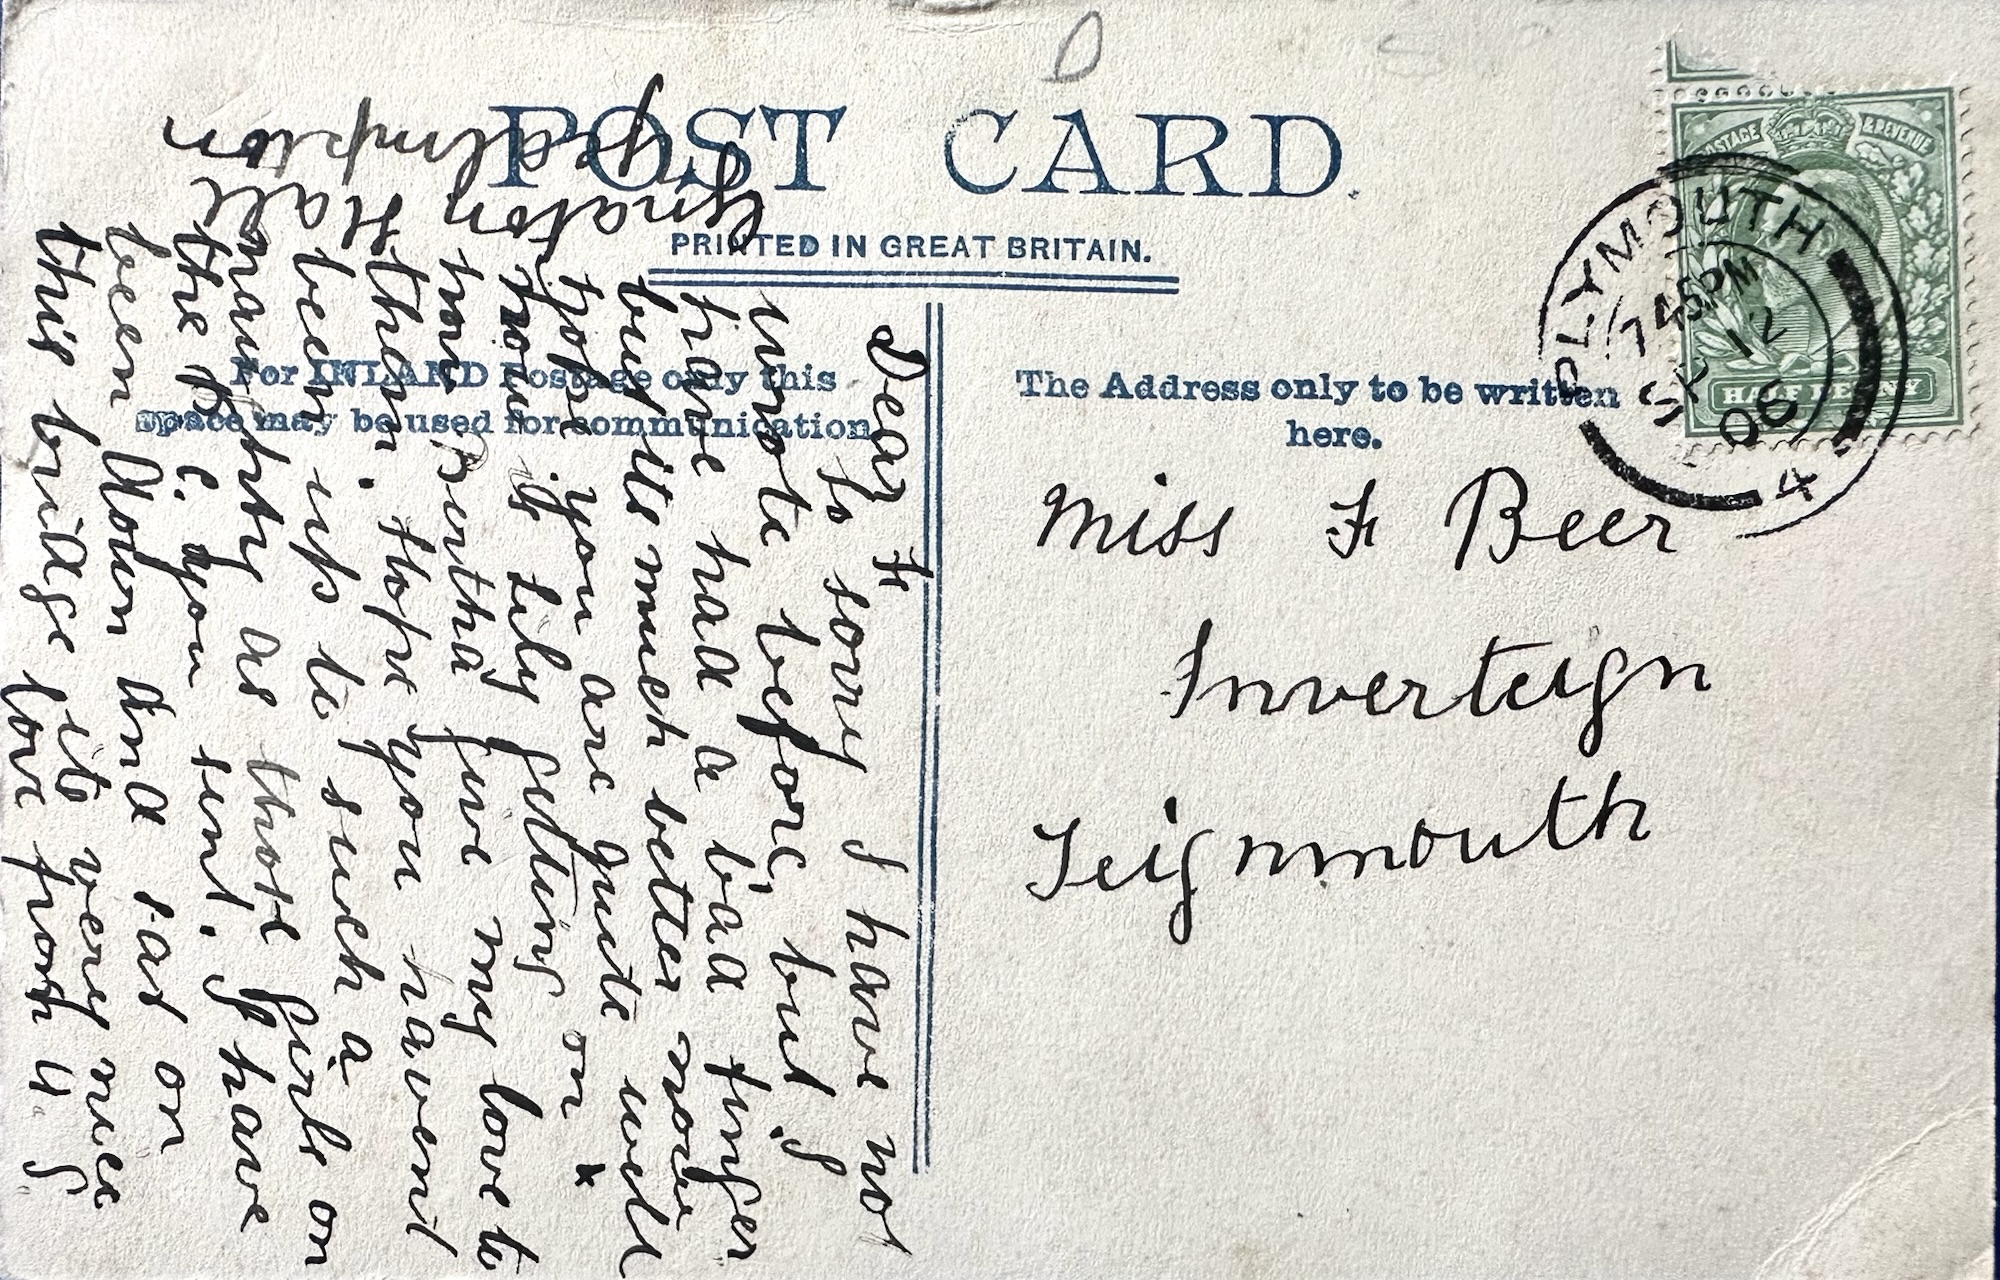 POST CARD.
PRINTED IN GREAT BRITAIN.
For INLAND Postage only this
space may be used for communication
The Address only to be written
here.
POSTAGE & REVENUE
HALF PENNY
PLYMOUTH
7 45 PM
SP 12
06
4
Miss F Beer
Inverteign
Teignmouth
Gnaton Hall
Yealmpton
Dear F
So sorry I have not
wrote before, but I
have had a bad finger
but its much better now
hope you are quite well
how is Lily getting on x
you Bertha give my love to
them. Hope you havent
been up to such a
naughty as those girls on
the P. C. you sent. I have
been down and sat on
this bridge its very nice
love from